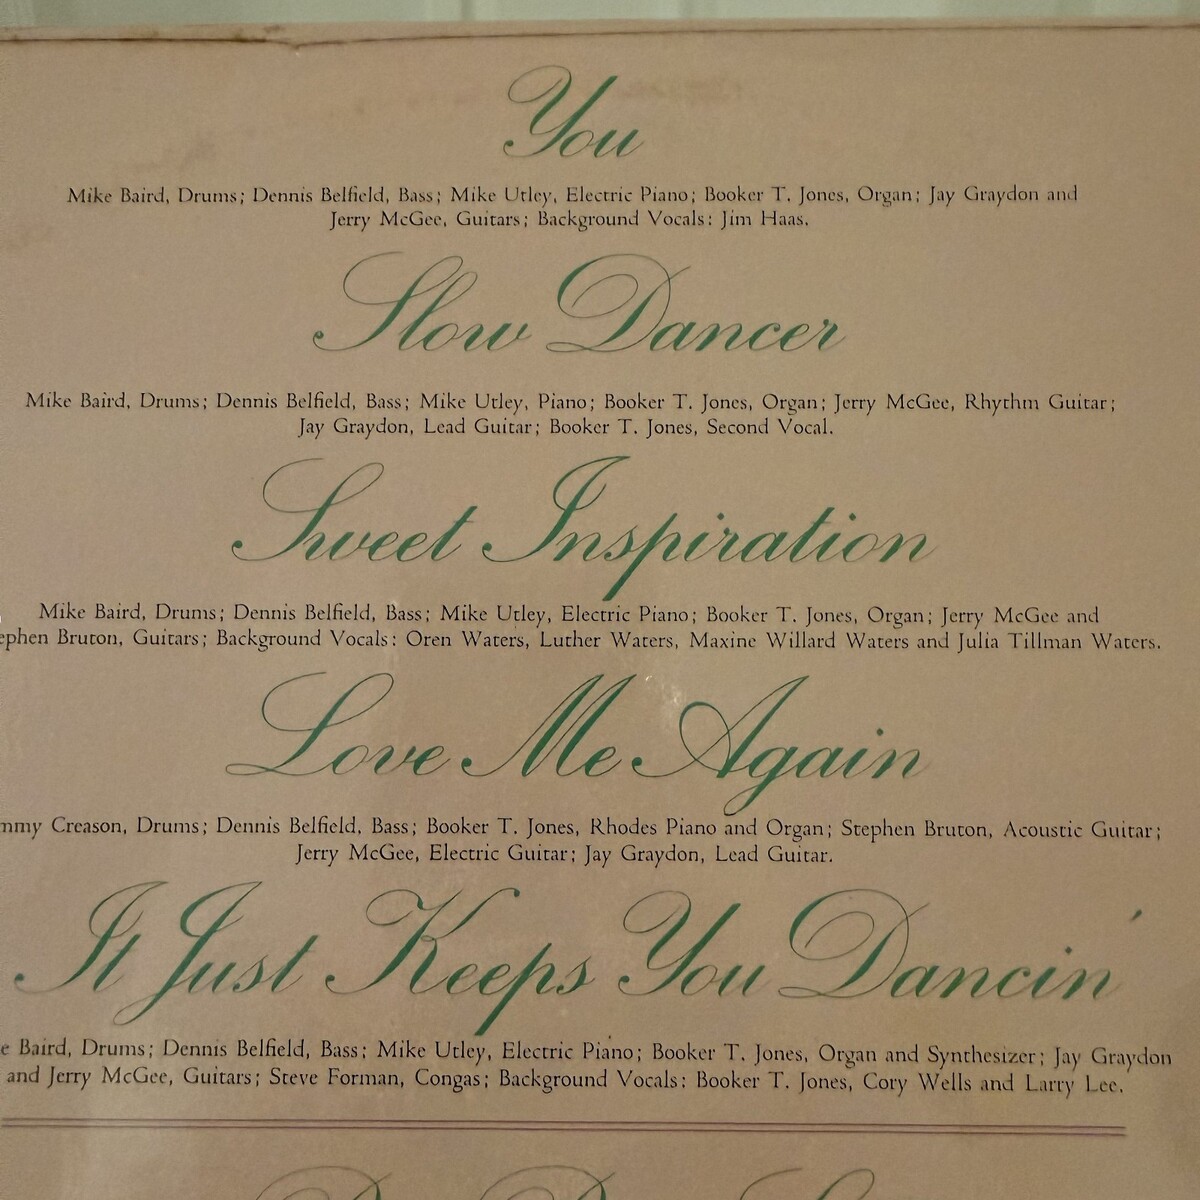 You
Mike Baird, Drums; Dennis Belfield, Bass; Mike Utley, Electric Piano; Booker T. Jones, Organ; Jay Graydon and
Jerry McGee, Guitars; Background Vocals: Jim Haas.
Slow Dancer
Mike Baird, Drums; Dennis Belfield, Bass; Mike Utley, Piano; Booker T. Jones, Organ; Jerry McGee, Rhythm Guitar;
Jay Graydon, Lead Guitar; Booker T. Jones, Second Vocal.
Sweet Inspiration
Mike Baird, Drums; Dennis Belfield, Bass; Mike Utley, Electric Piano; Booker T. Jones, Organ; Jerry McGee and
ephen Bruton, Guitars; Background Vocals: Oren Waters, Luther Waters, Maxine Willard Waters and Julia Tillman Waters.
Love Me Again
mmy Creason, Drums; Dennis Belfield, Bass; Booker T. Jones, Rhodes Piano and Organ; Stephen Bruton, Acoustic Guitar;
Jerry McGee, Electric Guitar; Jay Graydon, Lead Guitar.
It Just Keeps You Dancin'
e Baird, Drums; Dennis Belfield, Bass; Mike Utley, Electric Piano; Booker T. Jones, Organ and Synthesizer; Jay Graydon
and Jerry McGee, Guitars; Steve Forman, Congas; Background Vocals: Booker T. Jones, Cory Wells and Larry Lee.